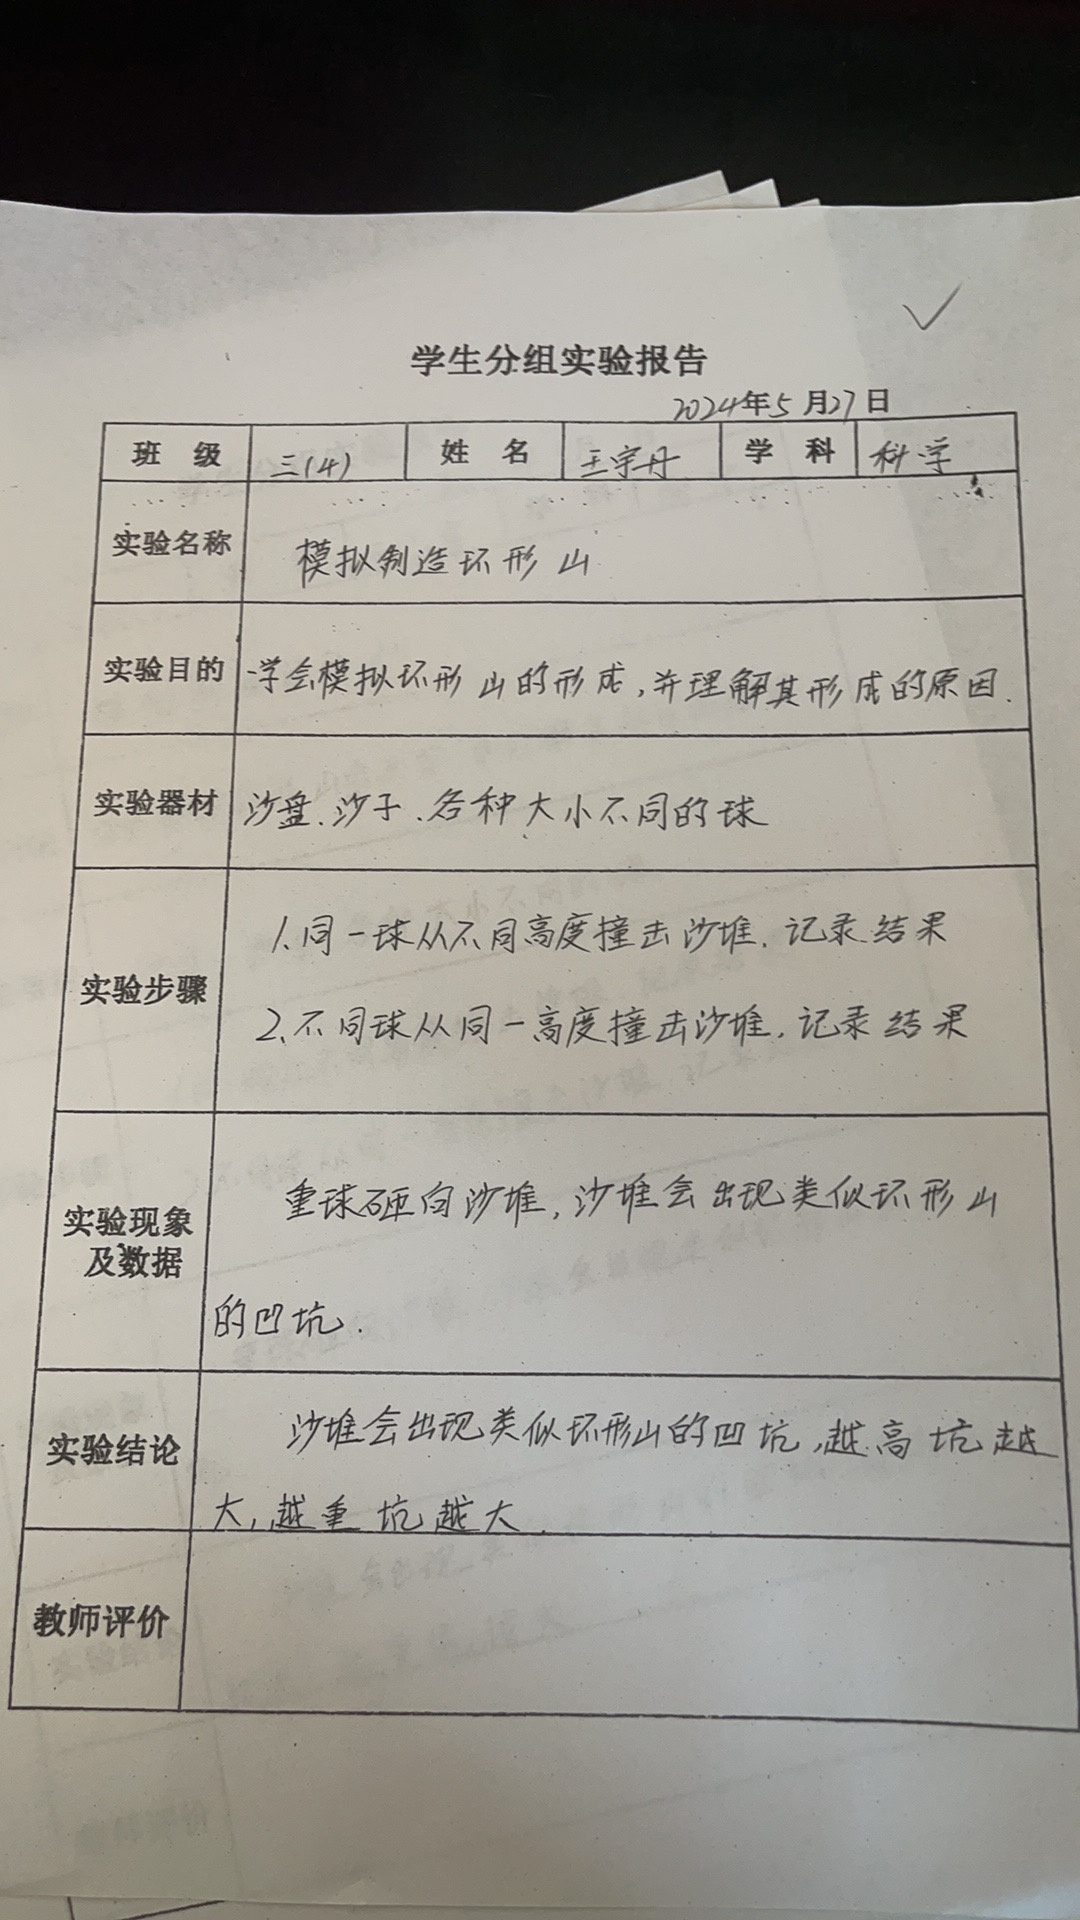 学生分组实验报告
2024年5月27日
班 级 三(4) 姓 名 王宇丹 学 科 科学
实验名称 模拟制造环形山
实验目的 学会模拟环形山的形成,并理解其形成的原因.
实验器材 沙盘、沙子、各种大小不同的球
实验步骤
1.同一球从不同高度撞击沙堆,记录结果
2、不同球从同一高度撞击沙堆,记录结果
实验现象
及数据
重球砸向沙堆,沙堆会出现类似环形山
的凹坑.
实验结论
沙堆会出现类似环形山的凹坑,越高坑越
大,越重坑越大.
教师评价